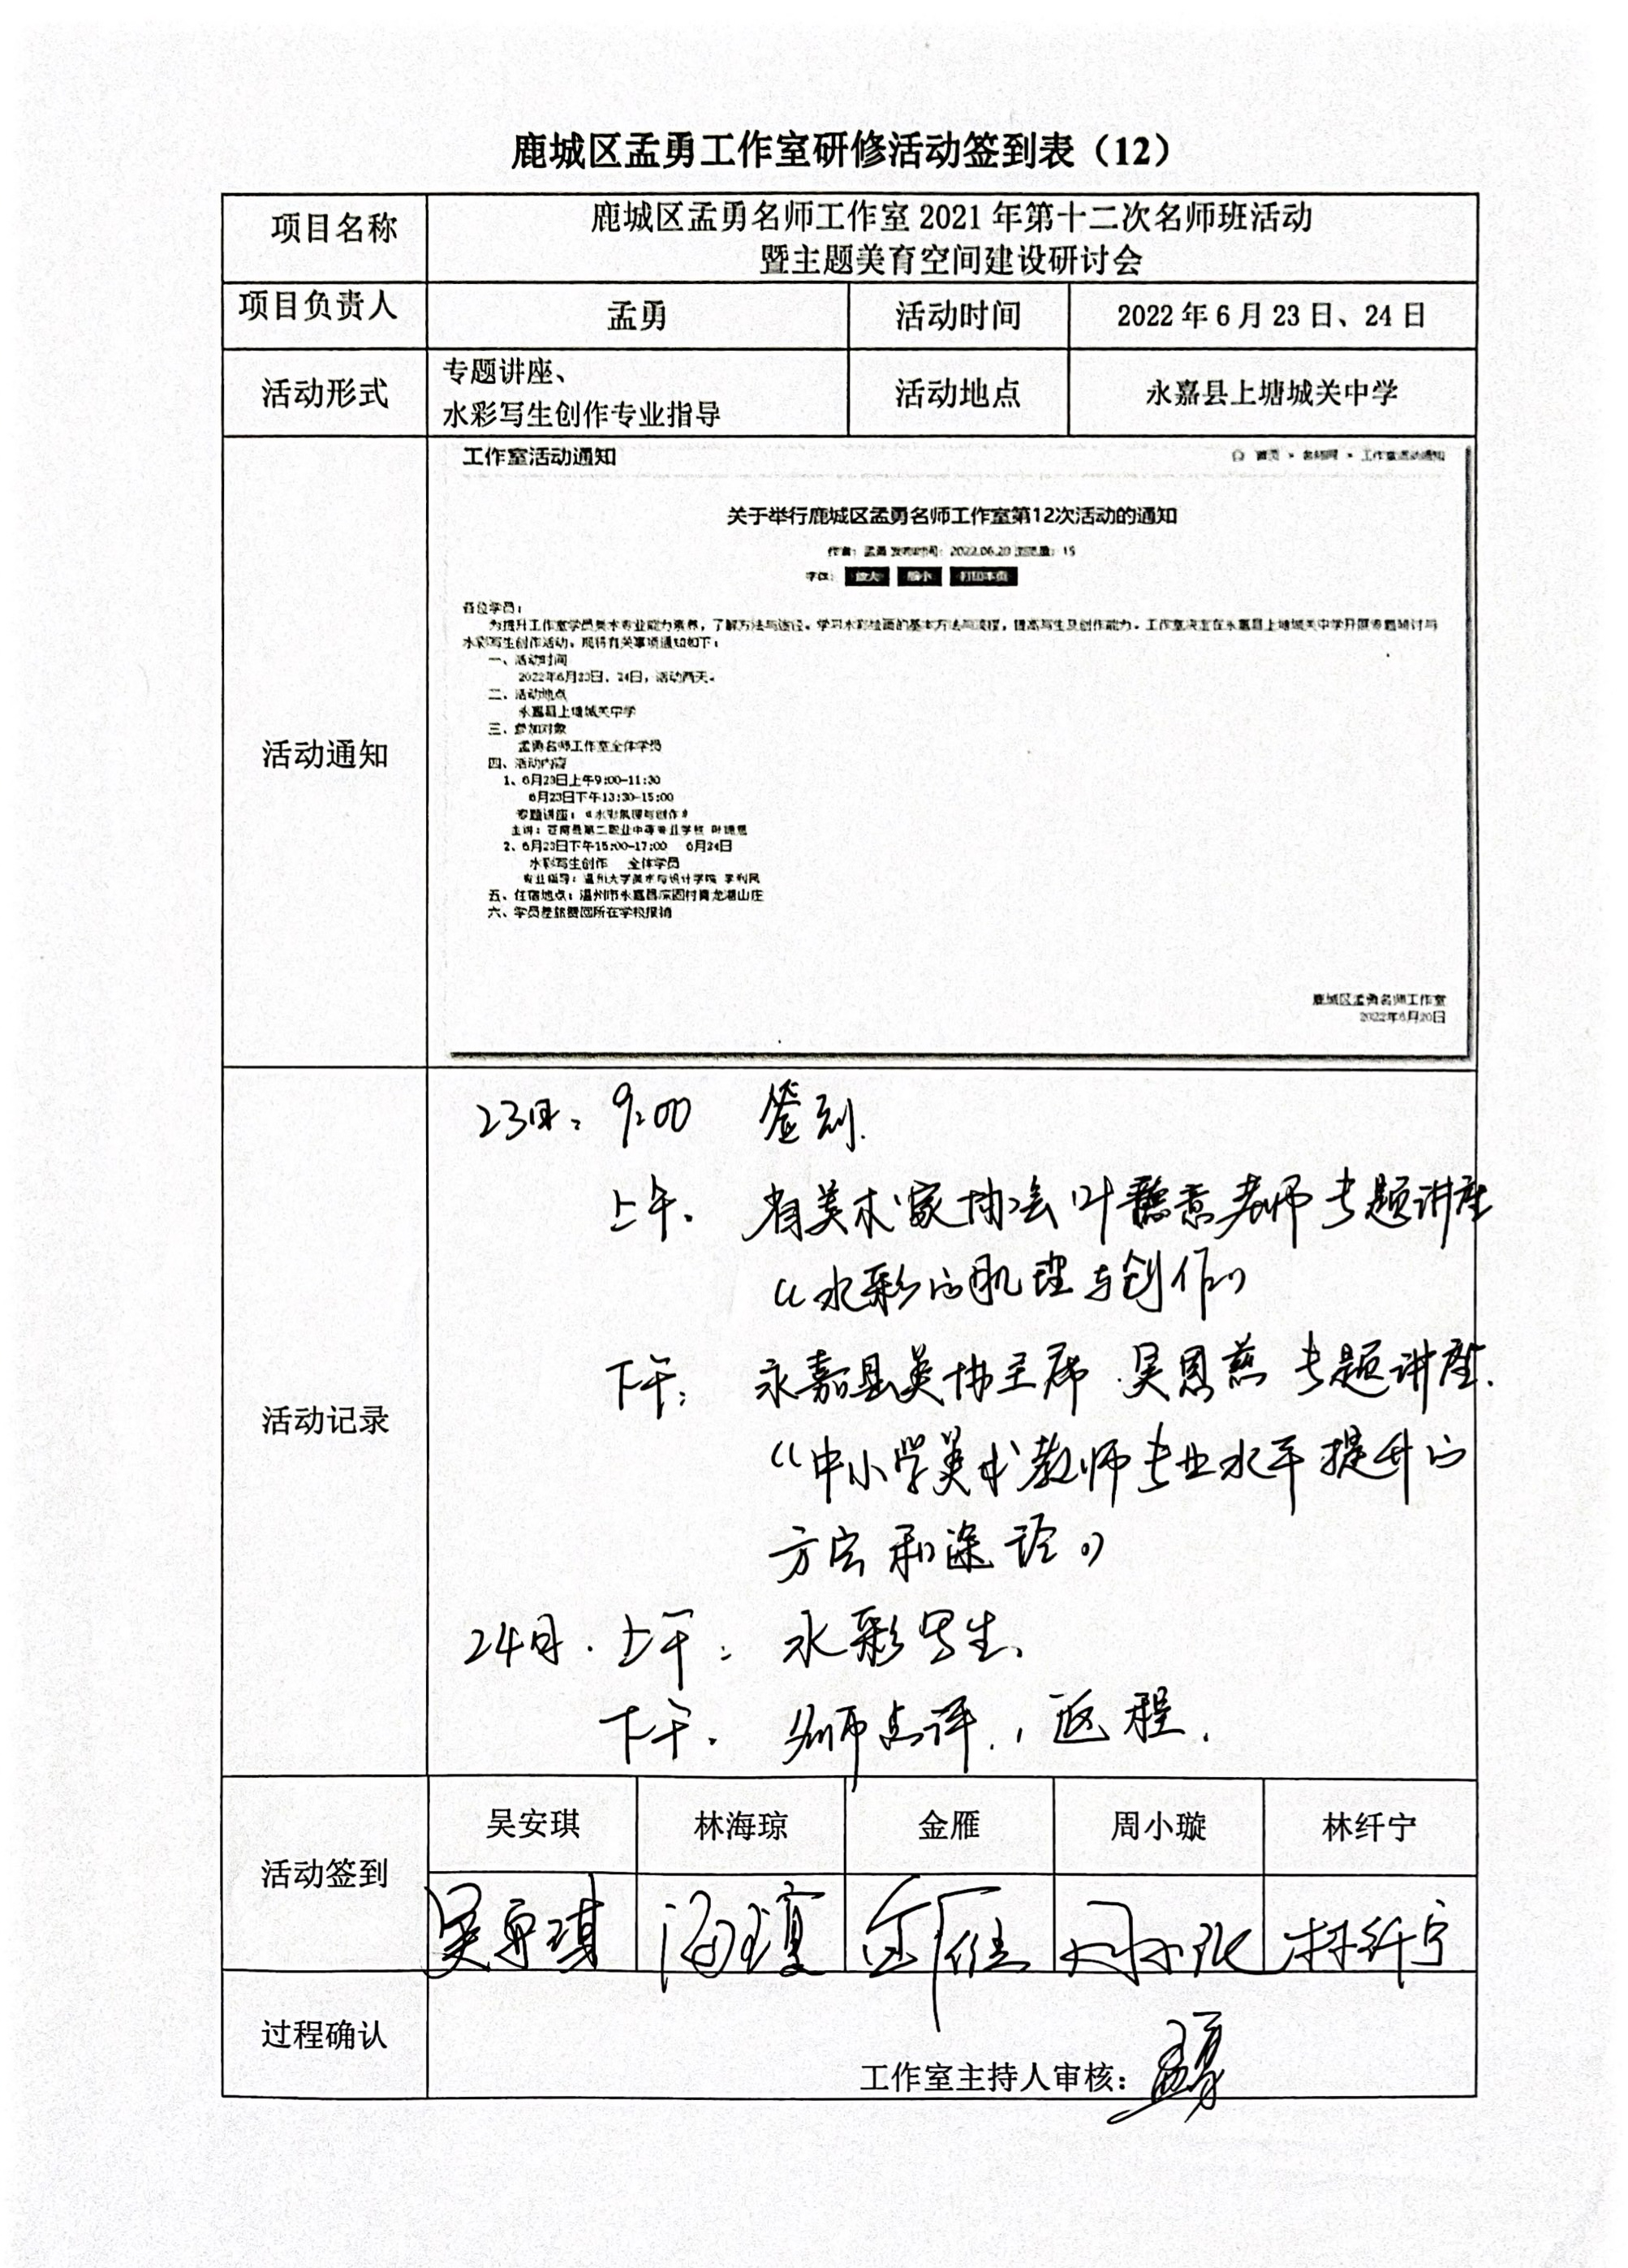 鹿城区孟勇工作室研修活动签到表（12）
项目名称
鹿城区孟勇名师工作室 2021 年第十二次名师班活动
暨主题美育空间建设研讨会
项目负责人
孟勇
活动时间
2022 年 6 月 23 日、24 日
活动形式
专题讲座、
水彩写生创作专业指导
活动地点
永嘉县上塘城关中学
活动通知
工作室活动通知
首页 > 名师网 > 工作室活动通知
关于举行鹿城区孟勇名师工作室第12次活动的通知
作者：孟勇 发布时间：2022.06.20 浏览量：15
字体： 放大 缩小 打印本页
各位学员：
为提升工作室学员美术专业能力素养，了解方法与途径，学习水彩绘画的基本方法与流程，提高写生及创作能力。工作室决定在永嘉县上塘城关中学开展专题研讨与
水彩写生创作活动，现将有关事项通知如下：
一、活动时间
2022年6月23日、24日，活动两天。
二、活动地点
永嘉县上塘城关中学
三、参加对象
孟勇名师工作室全体学员
四、活动内容
1、6月23日上午9:00-11:30
6月23日下午13:30-15:00
专题讲座：《水彩肌理与创作》
主讲：苍南县第二职业中等专业学校 叶
2、6月23日下午15:00-17:00 6月24日
水彩写生创作 全体学员
专业指导：温州大学美术与设计学院 李利民
五、住宿地点：温州市永嘉县 村青龙湖山庄
六、学员差旅费回所在学校报销
鹿城区孟勇名师工作室
2022年6月20日
活动记录
23日：9:00 签到.
上午. 省美术家协会叶 意老师专题讲座
《水彩的肌理与创作》
下午： 永嘉县美协主席 吴恩慈 专题讲座.
《中小学美术教师专业水平提升的
方法和途径》
24日. 上午： 水彩写生、
下午. 名师点评，返程.
活动签到
吴安琪
林海琼
金雁
周小璇
林纤宁
吴安琪
海琼
金雁
周小璇
林纤宁
过程确认
工作室主持人审核：孟勇